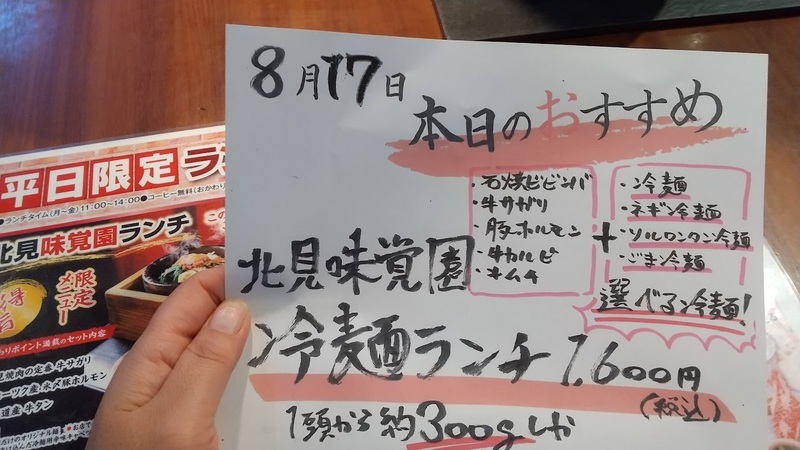 8月17日
本日のおすすめ
・石焼ビビンバ
・牛サガリ
・豚ホルモン
・牛カルビ
・キムチ
+
・冷麺
・ネギン冷麺
・ソルロンタン冷麺
・ごま冷麺
選べる冷麺!
北見味覚園
冷麺ランチ 1,600円
(税込)
1頭から約300gしか
平日限定ラ
●ランチタイム(月~金)11:00~14:00●コーヒー無料(おかわり
北見味覚園ランチ
限定
メニュー
ポイント満載のセット内容
見焼肉の定番 牛サガリ
ホーツク産 永〆豚ホルモン
道産 牛タン